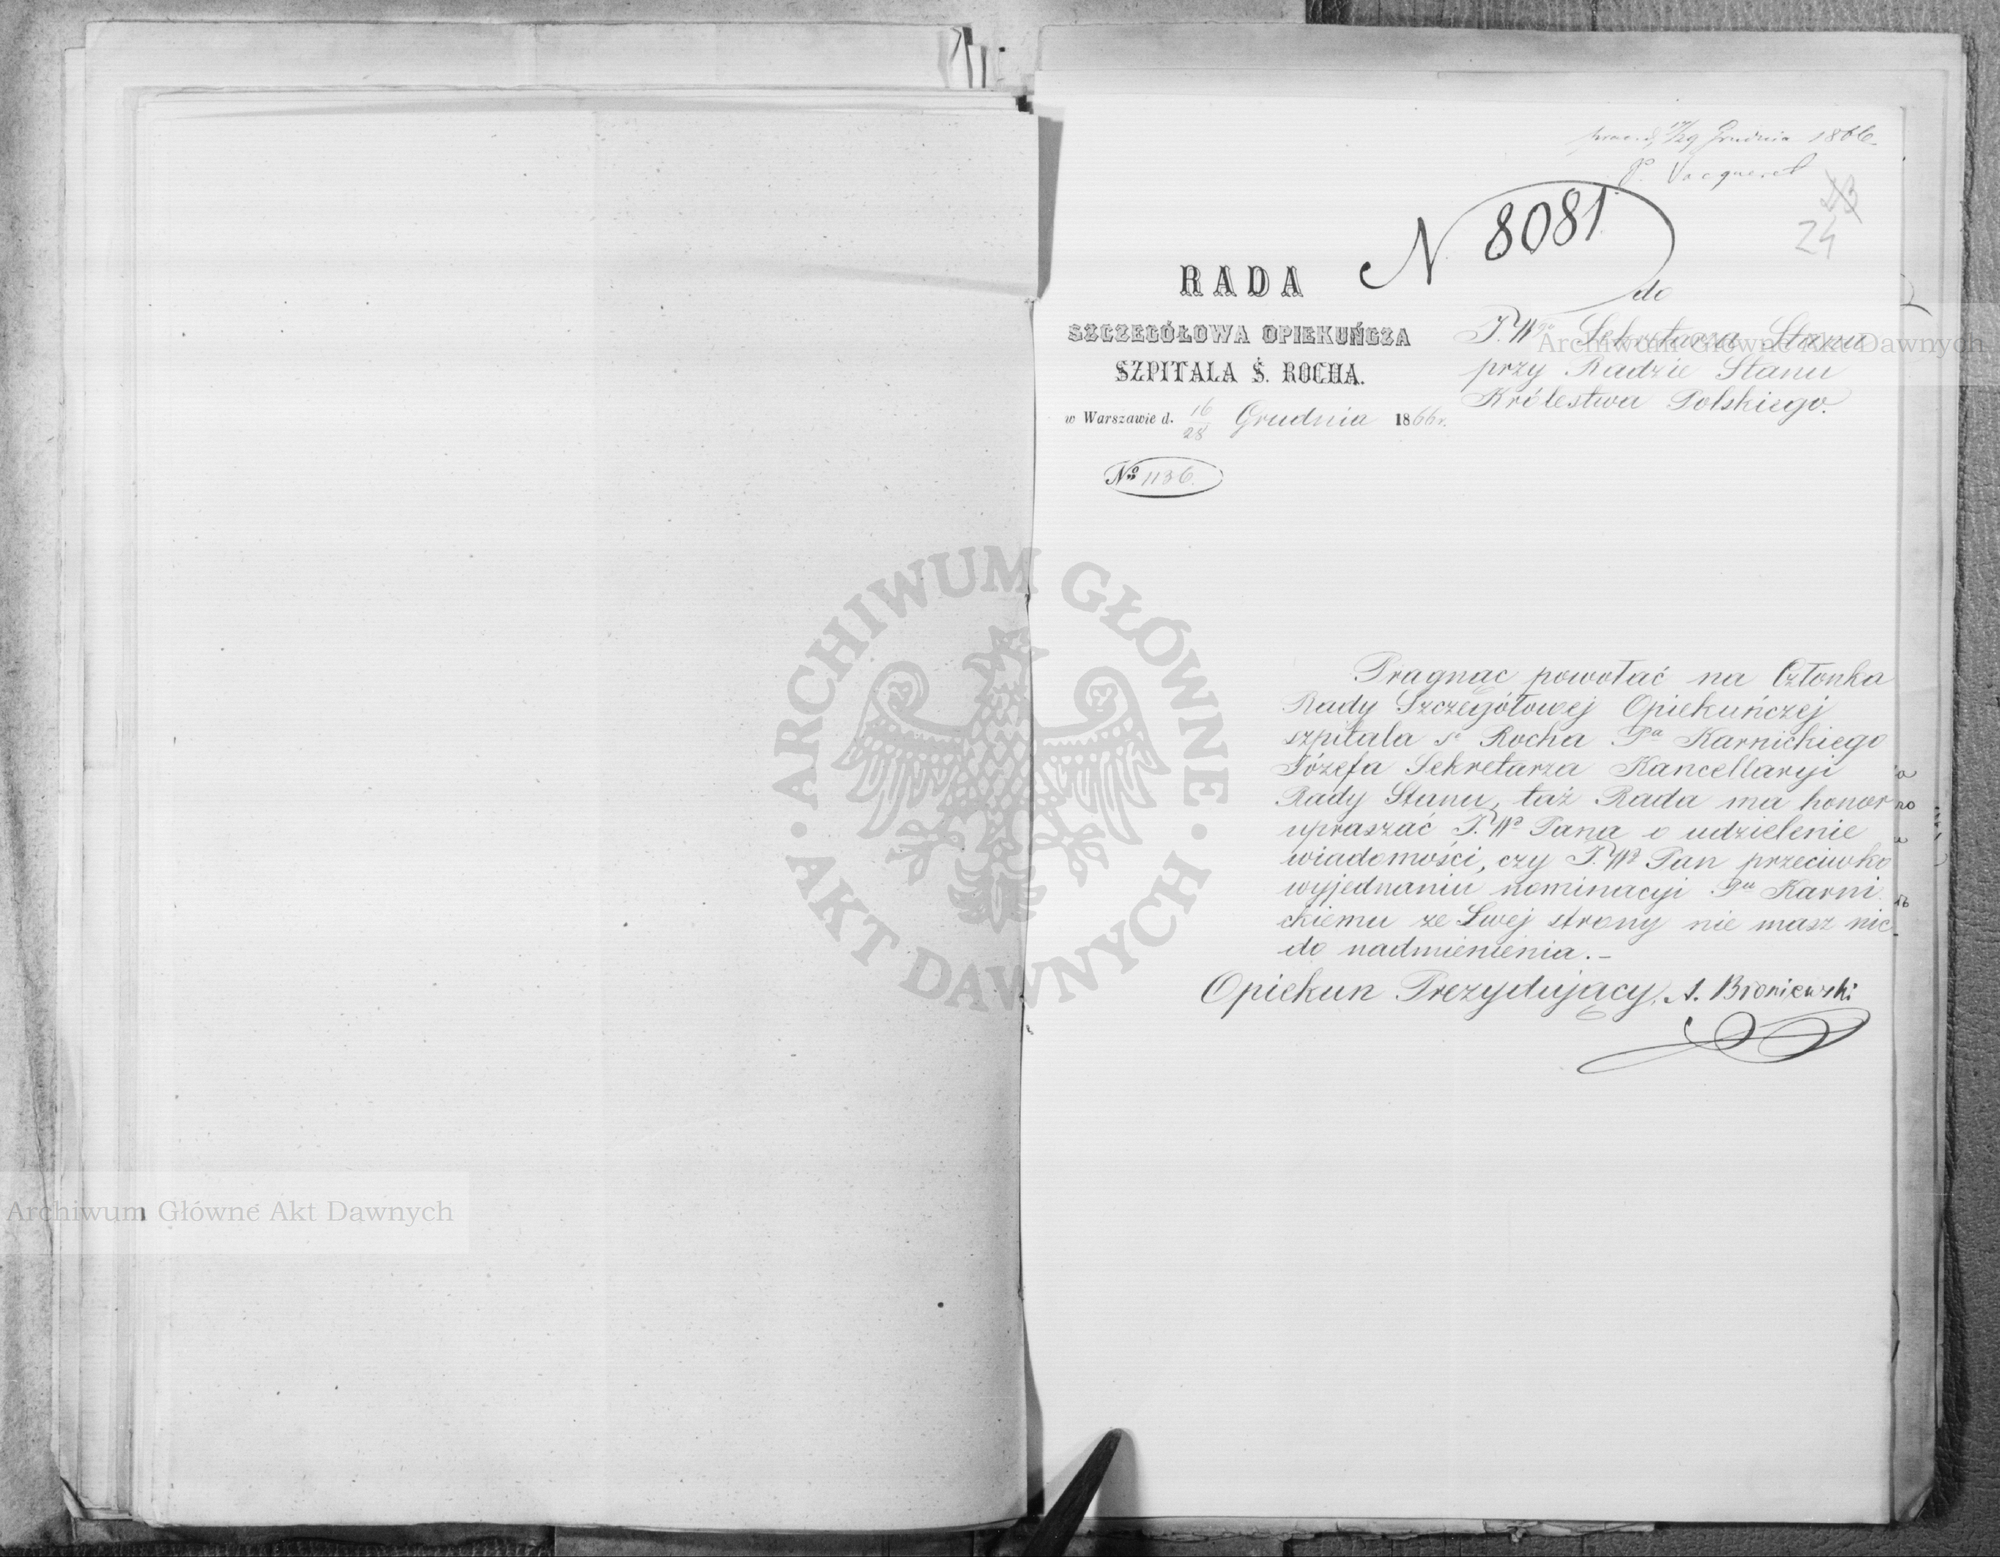 17/29 Grudnia 1866
23
24
N 8081
RADA
SZCZEGÓŁOWA OPIEKUŃCZA
SZPITALA Ś. ROCHA.
w Warszawie d. 16/28 Grudnia 1866 r.
No 1136.
do
J. Wgo Sekretarza Stanu
przy Radzie Stanu
Królestwa Polskiego.
Pragnąc powołać na Członka
Rady Szczegółowej Opiekuńczej
szpitala Sº Rocha Pa Karnickiego
Józefa Sekretarza Kancellaryi
Rady Stanu, taż Rada ma honor
upraszać J. Wo Pana o udzielenie
wiadomości, czy J. Wy Pan przeciwko
wyjednaniu nominacyi Pu Karni
ckiemu ze Swej strony nie masz nic
do nadmienienia.–
Opiekun Prezydujący, A. Broniewski
ARCHIWUM GŁÓWNE
AKT DAWNYCH
Archiwum Główne Akt Dawnych
Archiwum Główne Akt Dawnych